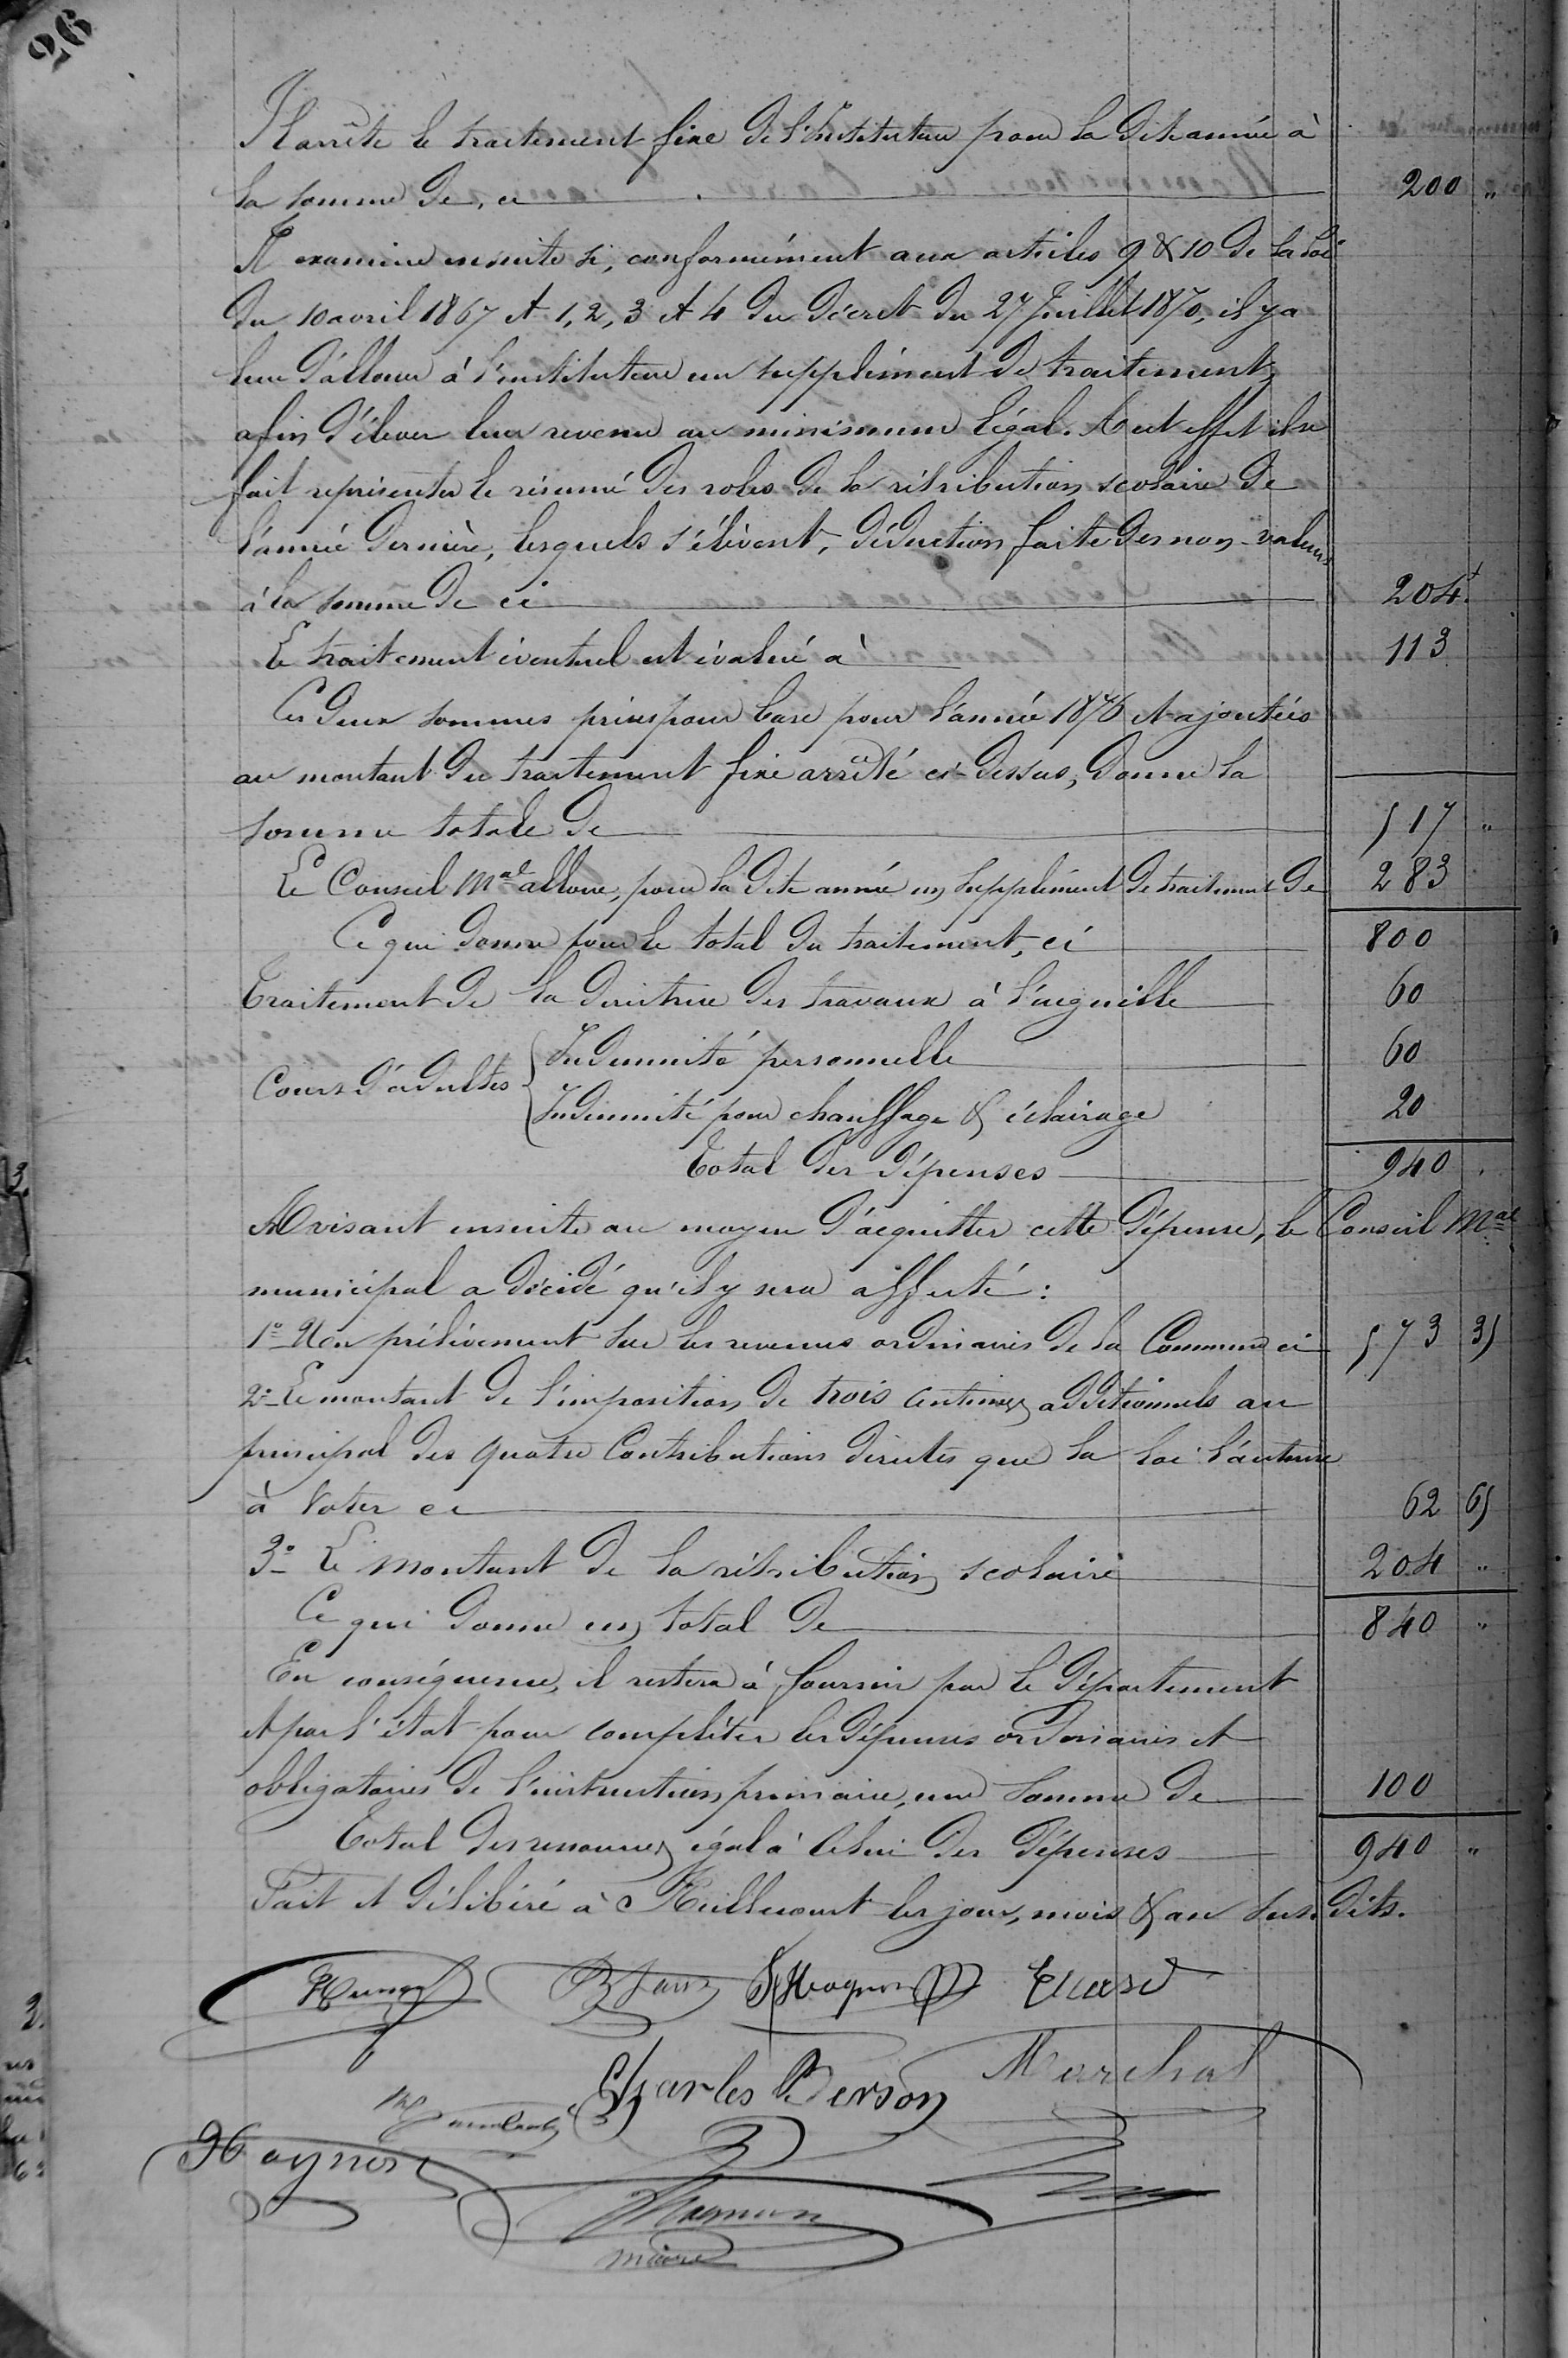 26
Il arrête le traitement fixe de l'Instituteur pour la dite année à
la somme de, ci 200 "
Il examine ensuite si, conformément aux articles 9 & 10 de la Loi
du 10 avril 1867 et 1, 2, 3 et 4 du décret du 27 Juillet 1870, il y a
lieu d'allouer à l'instituteur un supplément de traitement,
afin d'élever leur revenu au minimum légal. A cet effet il se
fait représenter le résumé des roles de la rétribution scolaire de
l'année dernière, lesquels s'élèvent, déduction faite des non-valeurs
à la somme de ci 204
Le traitement éventuel est évalué à 113
Ces deux sommes prises pour base pour l'année 1876 et ajoutées
au montant du traitement fixe arrêté ci-dessus, donne la
somme totale de 517 "
Le Conseil Mal alloue, pour la dite année un supplément de traitement de 283
Ce qui donne pour le total du traitement, ci 800
Traitement de la directrice des travaux à l'aiguille 60
Cours d'adultes { Indemnité personnelle 60
Indemnité pour chauffage & éclairage 20
Total des dépenses 940
Avisant ensuite au moyen d'acquitter cette dépense, le Conseil Mal
municipal a décidé qu'il y sera affecté :
1º Un prélèvement sur les revenus ordinaires de la Commune ci 573 35
2º Le montant de l'imposition de trois centimes additionnels au
principal des quatre Contributions directes que la loi l'autorise
à voter ci 62 65
3º Le montant de la rétribution scolaire 204 "
Ce qui donne un total de 840 "
En conséquence, il restera à fournir par le Département
et par l'état pour compléter les dépenses ordinaires et
obligatoires de l'instruction primaire, une somme de 100
Total des ressources égal à Celui des dépenses 940 "
Fait et délibéré à Heillecourt les jour, mois & an sus dits.
Charles Berson Marchal
maire